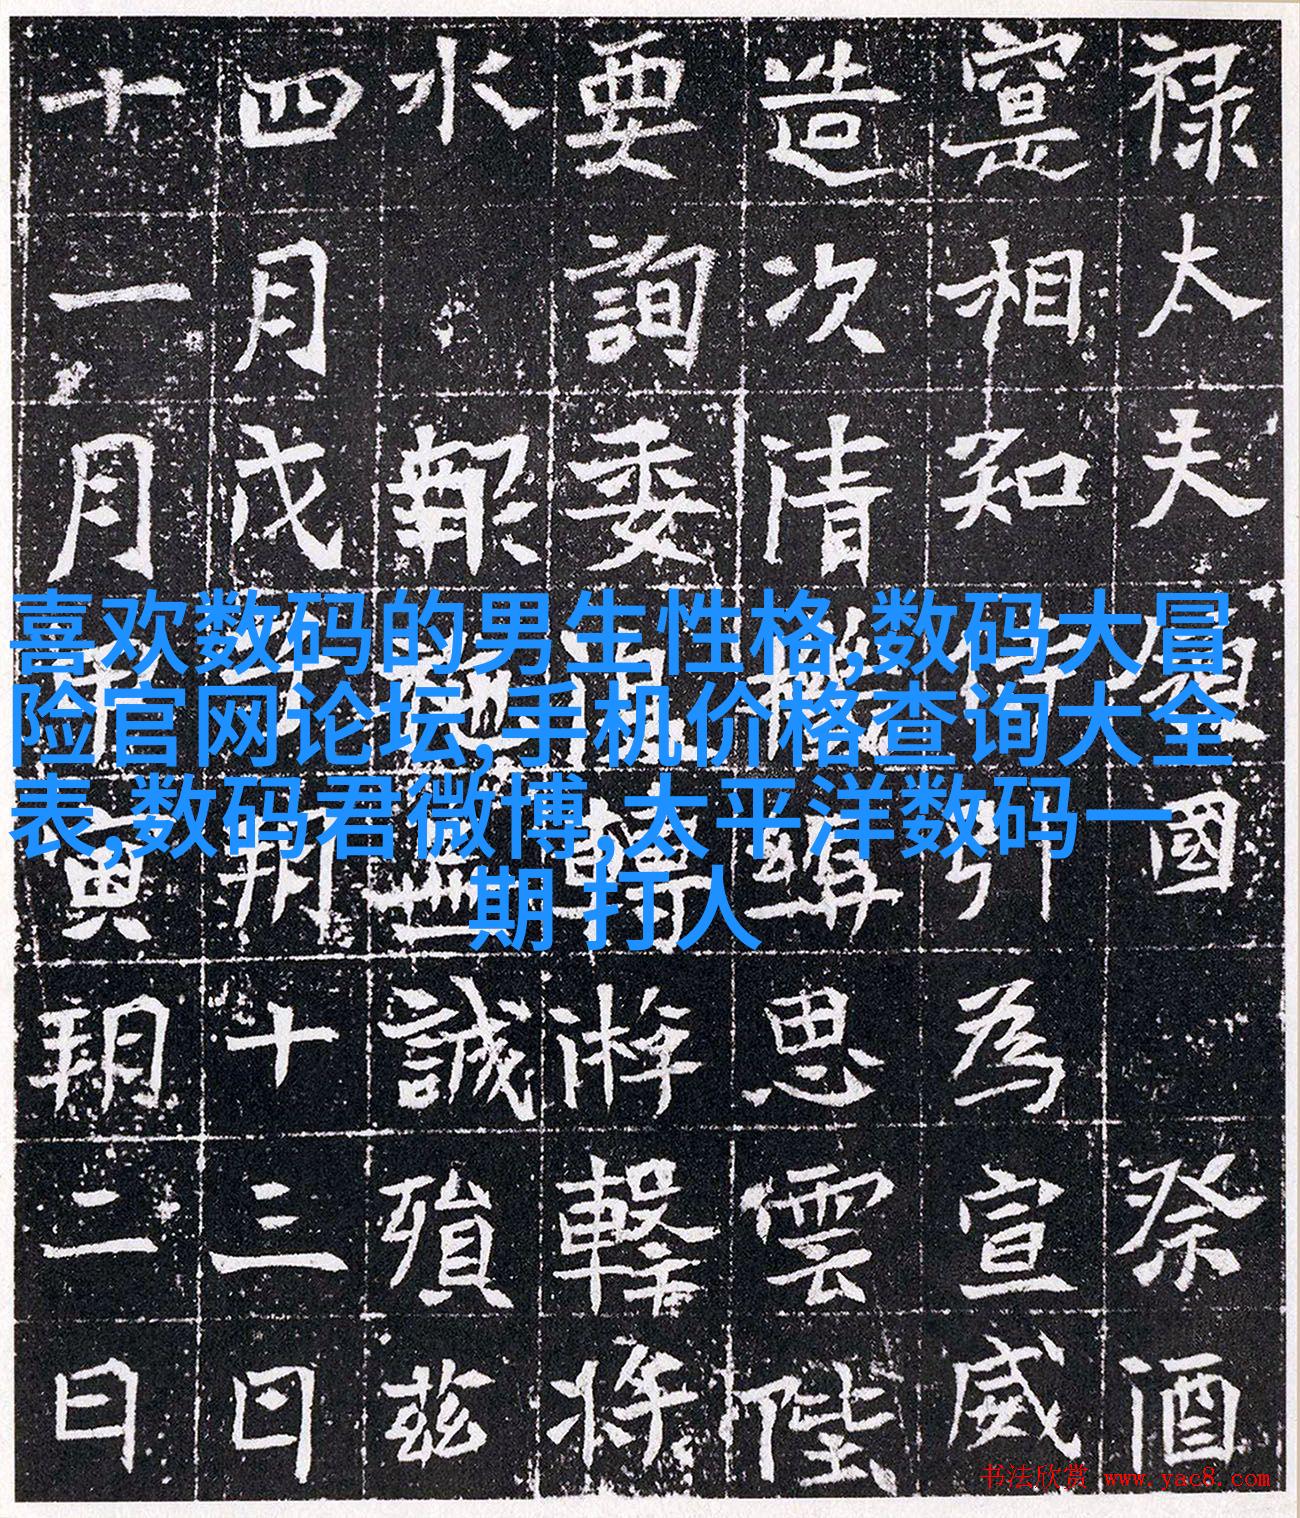 禄太夫國祭酒
寔相知引為宣威
造次清講思雲陛
要詢委轉游擊将
水報誠殞茲
四月戊朔十三日
十一月寅朔二日
喜欢数码的男生性格,数码大冒
险官网论坛,手机价格查询大全
表,数码君微博,太平洋数码一
期 打人
书法欣赏 www.yac8.com